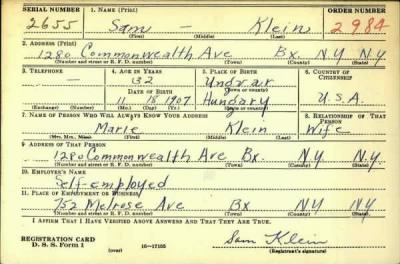 SERIAL NUMBER 1. NAME (Print) ORDER NUMBER
2655 Sam — Klein 2984
(First) (Middle) (Last)
2. ADDRESS (Print)
1280 Commonwealth Ave Bx. N.Y N.Y
(Number and street or R. F. D. number) (Town) (County) (State)
3. TELEPHONE 4. AGE IN YEARS 5. PLACE OF BIRTH 6. COUNTRY OF CITIZENSHIP
— 32 Ungvar
DATE OF BIRTH (Town or county)
11 18 1907 Hungary U.S.A.
(Exchange) (Number) (Mo.) (Day) (Yr.) (State or country)
7. NAME OF PERSON WHO WILL ALWAYS KNOW YOUR ADDRESS 8. RELATIONSHIP OF THAT PERSON
Marie Klein Wife
(Mr., Mrs., Miss) (First) (Middle) (Last)
9. ADDRESS OF THAT PERSON
1280 Commonwealth Ave Bx. N.Y. N.Y.
(Number and street or R. F. D. number) (Town) (County) (State)
10. EMPLOYER'S NAME
Self-employed
11. PLACE OF EMPLOYMENT OR BUSINESS
752 Melrose Ave Bx NY NY
(Number and street or R. F. D. number) (Town) (County) (State)
I AFFIRM THAT I HAVE VERIFIED ABOVE ANSWERS AND THAT THEY ARE TRUE.
REGISTRATION CARD
D. S. S. Form 1 (over) 16—17105 Sam Klein
(Registrant's signature)